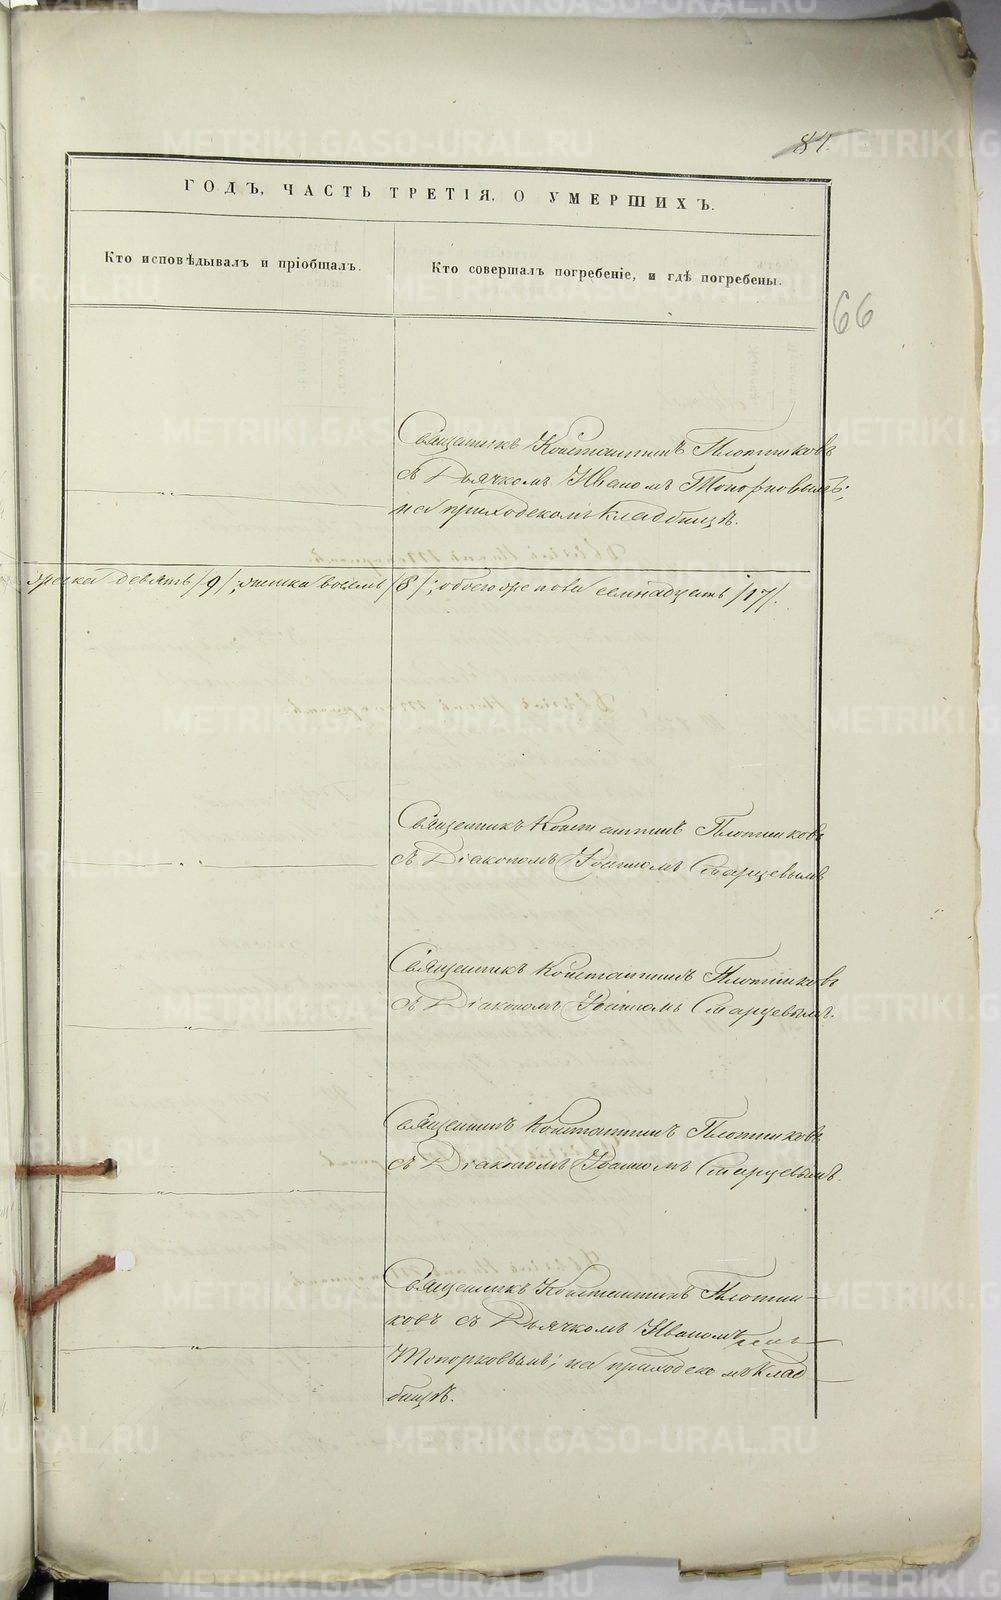 84.
ГОДЪ, ЧАСТЬ ТРЕТІЯ, О УМЕРШИХЪ.
Кто исповѣдывалъ и пріобщалъ.
Кто совершалъ погребеніе, и гдѣ погребены.
66
Священникъ Константинъ Плотниковъ
съ Дьячкомъ Иваномъ Топорковымъ;
на приходскомъ кладбищѣ.
мужеска девять /9/; женска восемь /8/; обоего же пола семнадцать /17/.
Священникъ Константинъ Плотниковъ
съ Діакономъ Іоанномъ Старцевымъ
Священникъ Константинъ Плотниковъ
съ Діакономъ Іоанномъ Старцевымъ.
Священникъ Константинъ Плотниковъ
съ Діакономъ Іоанномъ Старцевымъ.
Священникъ Константинъ Плотни-
ковъ съ Дьячкомъ Иваномъ
Топорковымъ; на приходскомъ клад
бищѣ.
METRIKI.GASO-URAL.RU